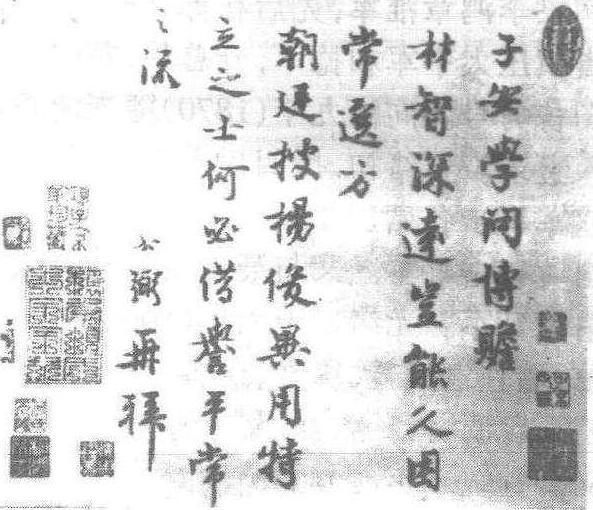 子安學問博贍
材智深遠豈能久困
常選方
朝廷拔揚俊異用特
立之士何必借譽平常
之流
公弼再拜